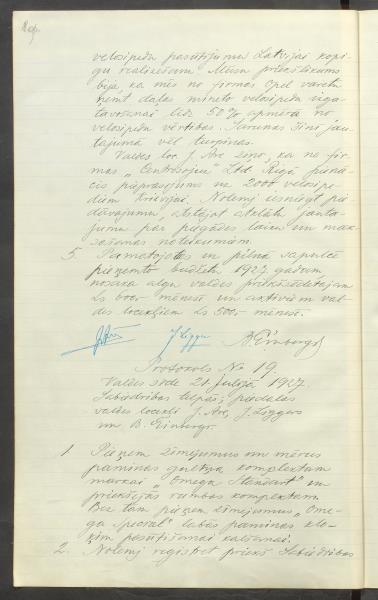 velosipēdu pasūtījumu Latvijai kopī-
gu realizēšanu. Mūsu priekšlikums
bija, ka mēs no firmas Opel varētu
ņemt daļas minēto velosipēdu izga-
tavošanai līdz 50% apmērā no
velosipēdu vērtības. Sarunas šinī jau-
tājumā vēl turpinas.
Valdes loc. J. Āre ziņo, ka no fir-
mas " Ltd. Rīgā pienā-
cis pieprasījums uz 2000 velosipē-
diem Krievijai. Nolemj iesniegt pie-
dāvājumu, atstājot atklātu jautā-
jumu par piegādes laiku un mak-
sāšanas noteikumiem.
5. Pamatojoties uz pilnā sapulcē
pieņemto budžetu 1927. gadam
nosaka algu valdes priekšsēdētājam
Ls 600,- mēnesī un aktīviem val-
des locekļiem Ls 500,- mēnesī.
J. Liggers B. Einbergs
Protokols No 19.
Valdes sēde 21 jūlijā 1927.
Sabiedrības telpās; piedalās
valdes locekļi J. Āre, J. Liggers
un B. Einbergs.
1. Pieņem zīmējumus un mērus
paminas gultņa komplektam
markai "Omega Standart" un
priekšējās rumbas komplektam.
Bez tam pieņem zīmējumus "Ome-
ga Special" labās paminas klo-
ķim pasūtīšanai kalšanai.
2. Nolemj reģistrēt priekš Sabiedrības